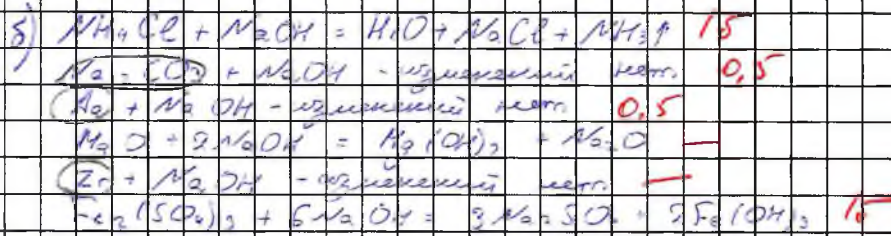 б) NH₄Cl + NaOH = H₂O + NaCl + NH₃↑ 1б
Na₂CO₃ + NaOH - изменений нет. 0,5
Ag + NaOH - изменений нет 0,5
MgO + 2NaOH = Mg(OH)₂ + Na₂O —
Zn + NaOH - изменений нет. —
Fe₂(SO₄)₃ + 6NaOH = 3Na₂SO₄ + 2Fe(OH)₃ 1б